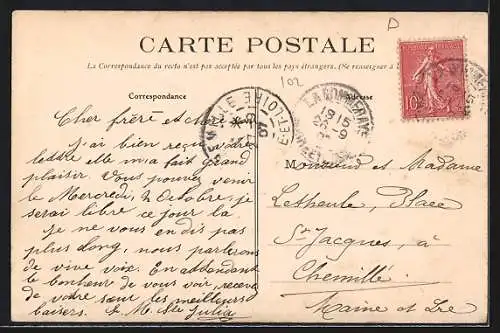 CARTE POSTALE
La Correspondance du recto n'est pas acceptée par tous les pays étrangers. (Se renseigner à
D
102
Correspondance
Adresse
10
Cher frère et
J'ai bien reçu votre
lettre elle m'a fait grand
plaisir. Vous pouvez venir
le Mercredi, 2 Octobre, je
serai libre ce jour là.
Je ne vous en dis pas
plus long, nous parlerons
de vive voix. En attendant
le bonheur de vous voir, recevez
de votre sœur les meilleurs
baisers. Julia
MAINE-ET-LOIRE
Monsieur et Madame
Letheule, Place
St Jacques, à
Chemillé.
Maine et Lre